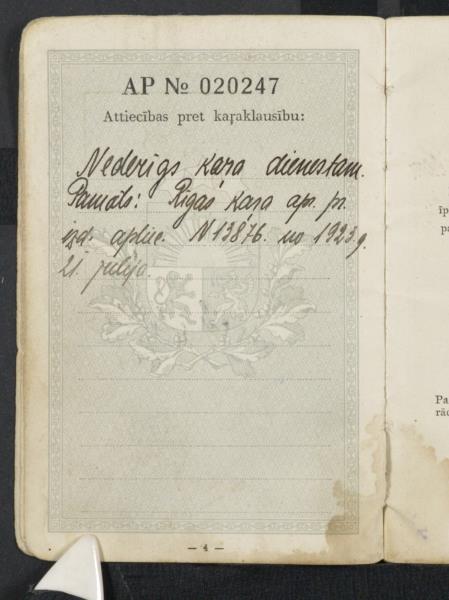 AP № 020247
Attiecības pret kaŗaklausību:
Nederīgs kara dienestam.
Pamats: Rīgas kara apr. pr.
izd. apliec. N 13876. no 1923.g.
21. jūlija.
— 4 —
īp
pa
Pa
rād